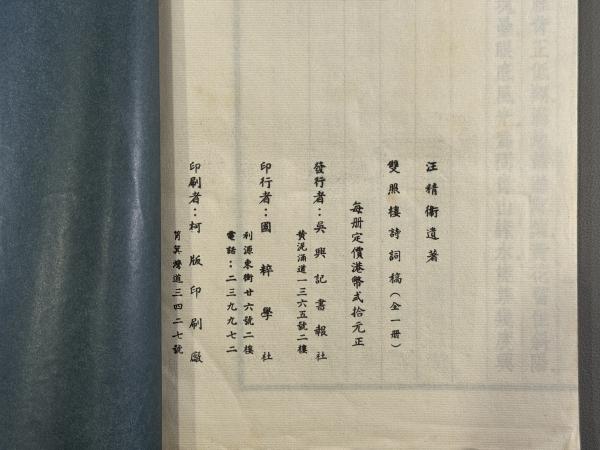 汪精衞遺著
雙照樓詩詞稿（全一册）
每册定價港幣弍拾元正
發行者：吳興記書報社
黄泥涌道一三六五號二樓
印行者：國粹學社
利源東街廿六號二樓
電話：二三九九七二
印刷者：柯版印刷廠
筲箕灣道三四二七號